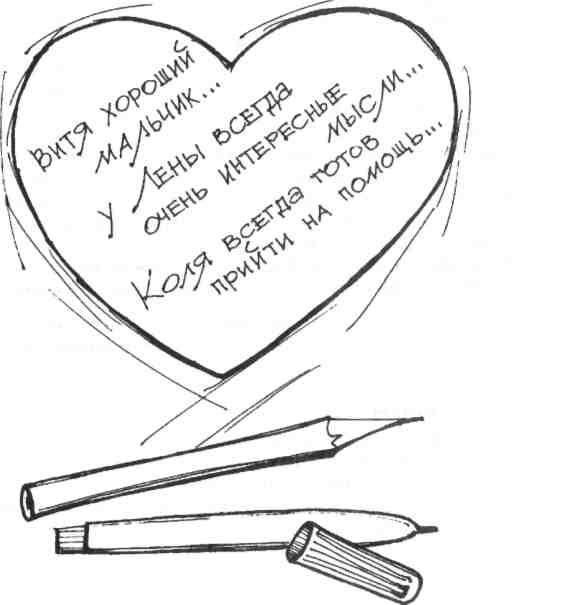 Витя хороший
мальчик...
У Лены всегда
очень интересные
мысли...
Коля всегда готов
прийти на помощь...